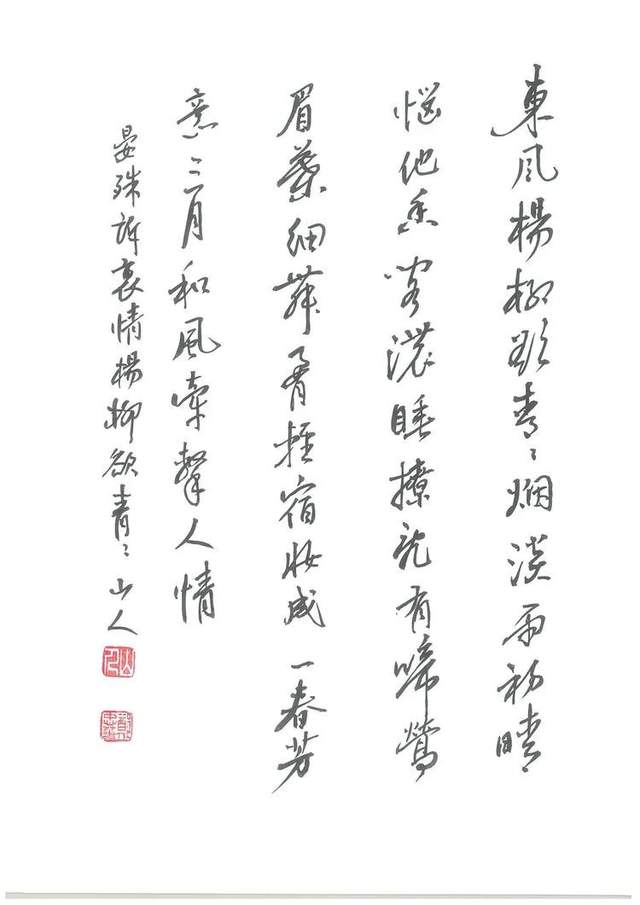 東風楊柳欲青々烟淡雨初晴
惱他香閣濃睡撩亂有啼鶯
眉葉細舞腰輕宿妝成一春芳
意三月和風牽繫人情
晏殊訴衷情楊柳欲青々山人